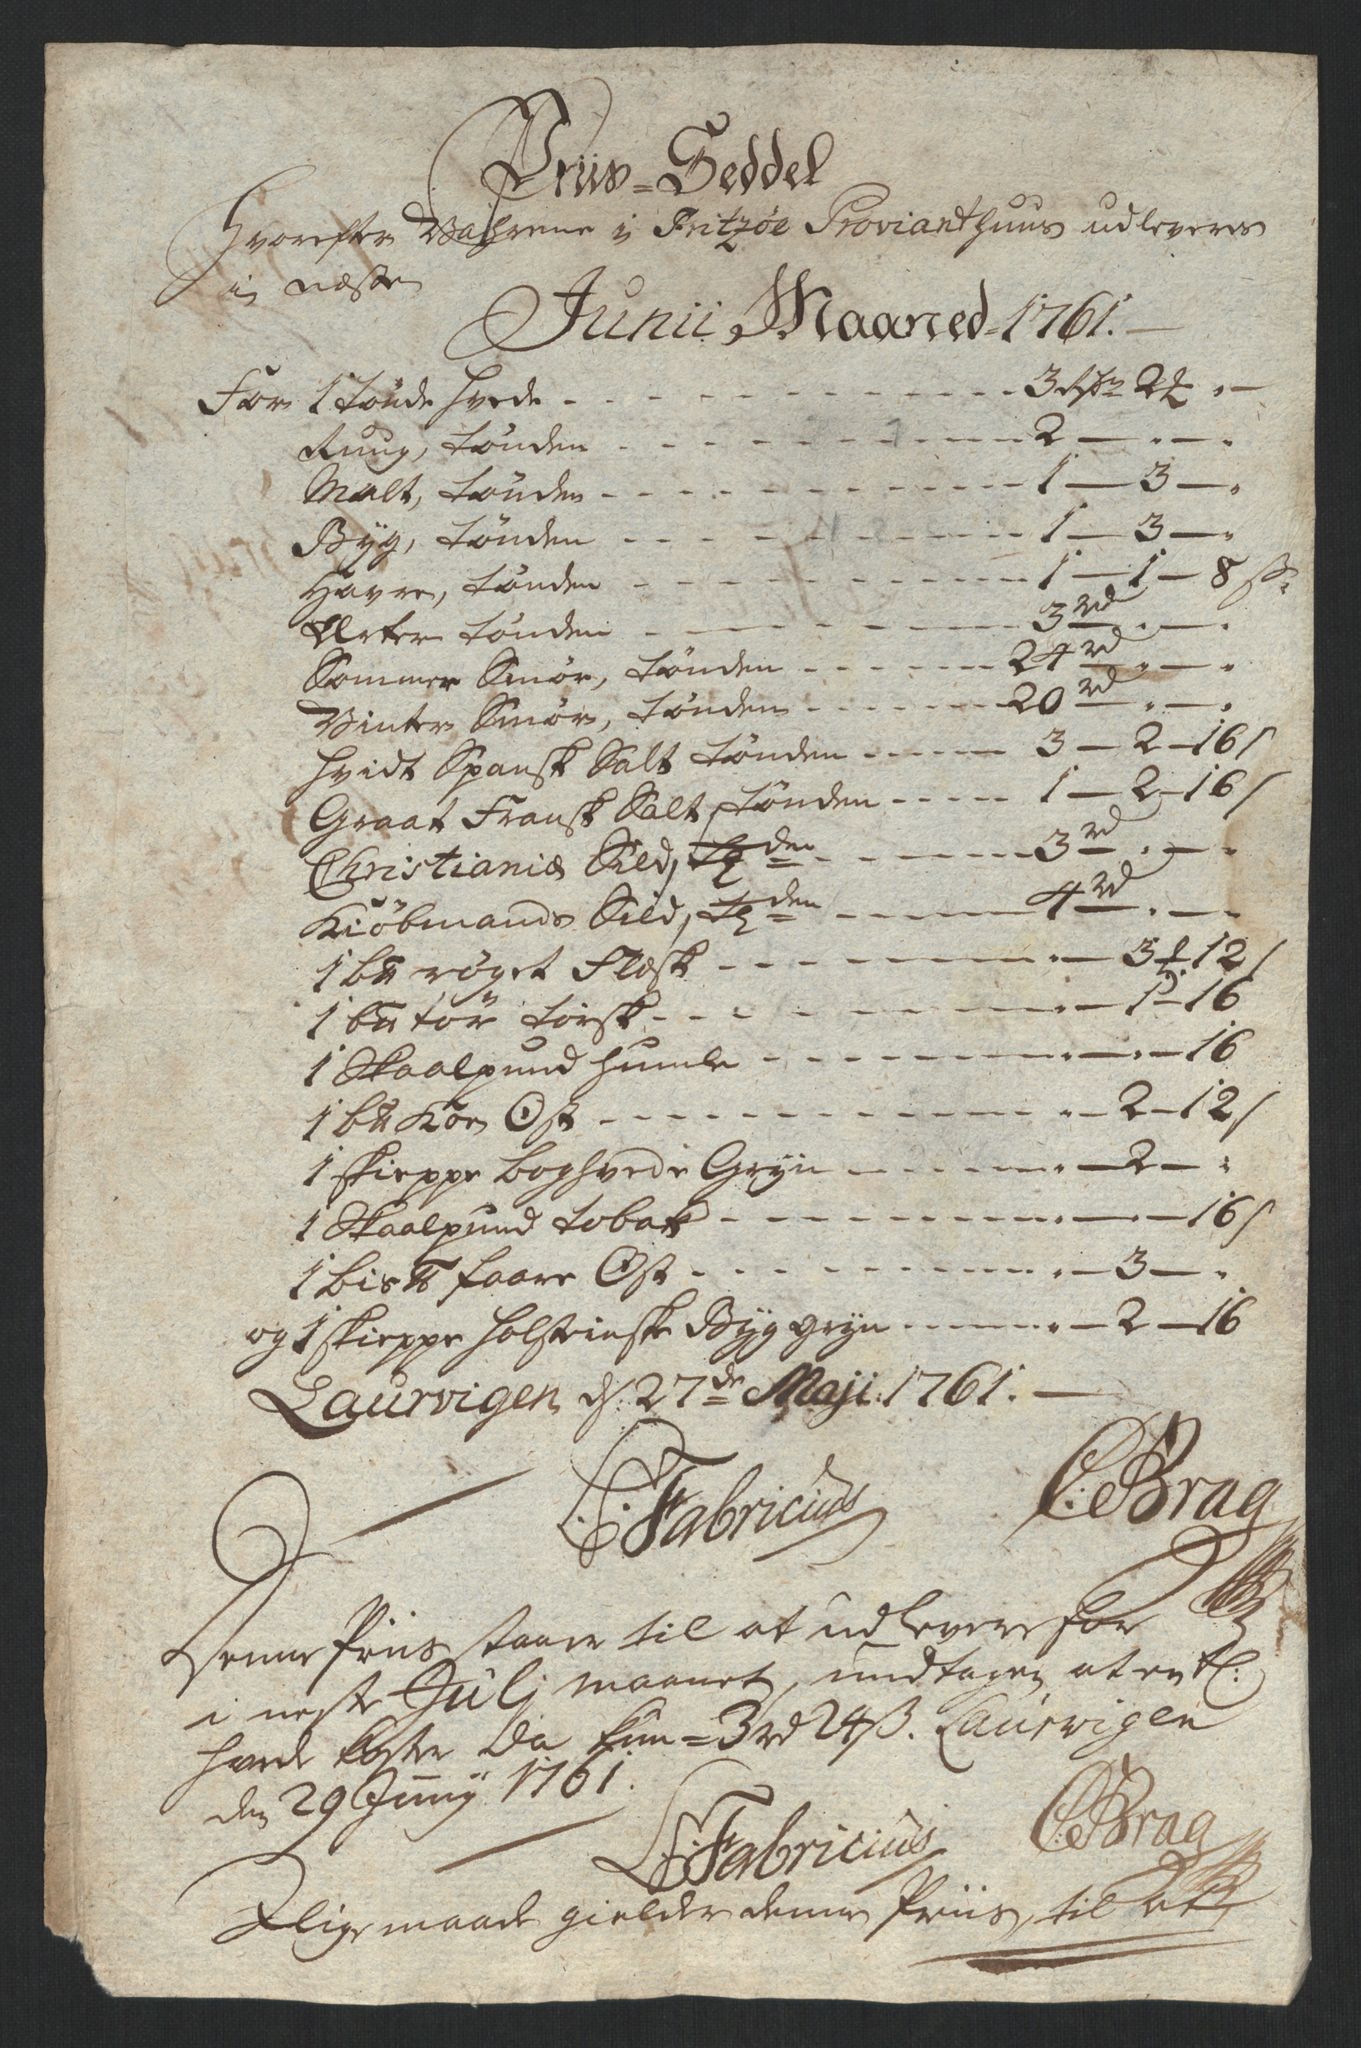 Priis=Seddel
Hvorefter Vahrene i Fritzøe Provianthuus udleveres
i næste
Junii Maaned 1761.
For 1 tønde hvede - - - 3 rdr 2 ₰ . -
Ruug, tønden - - - 2 - . - .
Malt, tønden - - - 1 - 3 - .
Byg, tønden - - - 1 - 3 - .
Havre, tønden - - - 1 - 1 - 8 s
Erter tønden - - - 3 rd . - .
Sommer Smør, tønden - - - 24 rd . - .
Vinter Smør, tønden - - - 20 rd . - .
hvidt Spansk Salt tønden - - - 3 - 2 - 16 s
Graat Fransk Salt, tønden - - - 1 - 2 - 16 s
Christiania Sild, Tden - - - 3 rd . - .
Kiøbmands Sild, Tden - - - 4 rd . - .
1 b℔ røget Flæsk - - - . - 3 ₰ 12 s
1 b℔ tør torsk - - - . - 1 - 16
1 Skaalpund humle - - - . - . - 16
1 b℔ Koe Ost - - - . - 2 - 12 s
1 skieppe boghvede Gryn - - - . - 2 - .
1 Skaalpund tobak - - - . - . - 16 s
1 bis℔ faare Ost - - - . - 3 - .
og 1 skieppe holstensk Byggryn - - - . - 2 - 16
Laurvigen d: 27de Maji 1761.
C: Fabricius C: Brag
Denne Priis staaer til at udlevere for
i neste Julj maanet, undtagen at en t:
hvede koster da kun = 3 rd 24 β. Laurvigen
den 29 Junij 1761.
C: Fabricius C: Brag
Ligemaade gielder denne Priis, til at